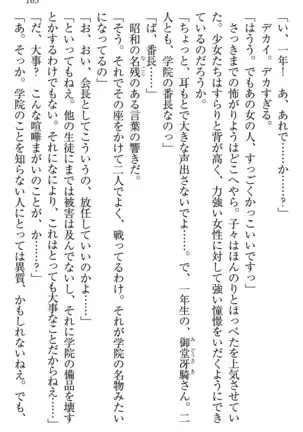 105
「い、一年！　あ、あれで……か……？」
デカイ。デカすぎる。
「はうう。でもあの女の人、すっごくかっこいいですっ」
さっきまでの怖がりようはどこへやら。子々はほんのりとほっぺたを上気させてい
た。少女たちはすらりと背が高く、力強い女性に対して強い憧憬をいだくようにでき
ているのだろうか。
「ちょっと、耳もとで大きな声出さないでよ……。で、一年生の、御堂冴騎さん。二
人とも、学院の番長なのっ」
「ば、番長……」
昭和の名残のある言葉の響きだ。
「そう。それでその座をかけて二人でよく、戦ってるわけ。それが学院の名物みたい
になってるわ」
「お、おい、会長としてこういうの、放任していいのかよ……」
「もっちろんよねえ。他の生徒にまでは被害は及んでないし、それに学院の備品を壊す
わけでもないし。それになにより、これはとっても大事なことだからねえ……」
「だ、大事？　こんな喧嘩まがいのことが、か……？」
「あ。そっか。学院のことを知らない人にとっては異質、かもしれないねえ。でも、